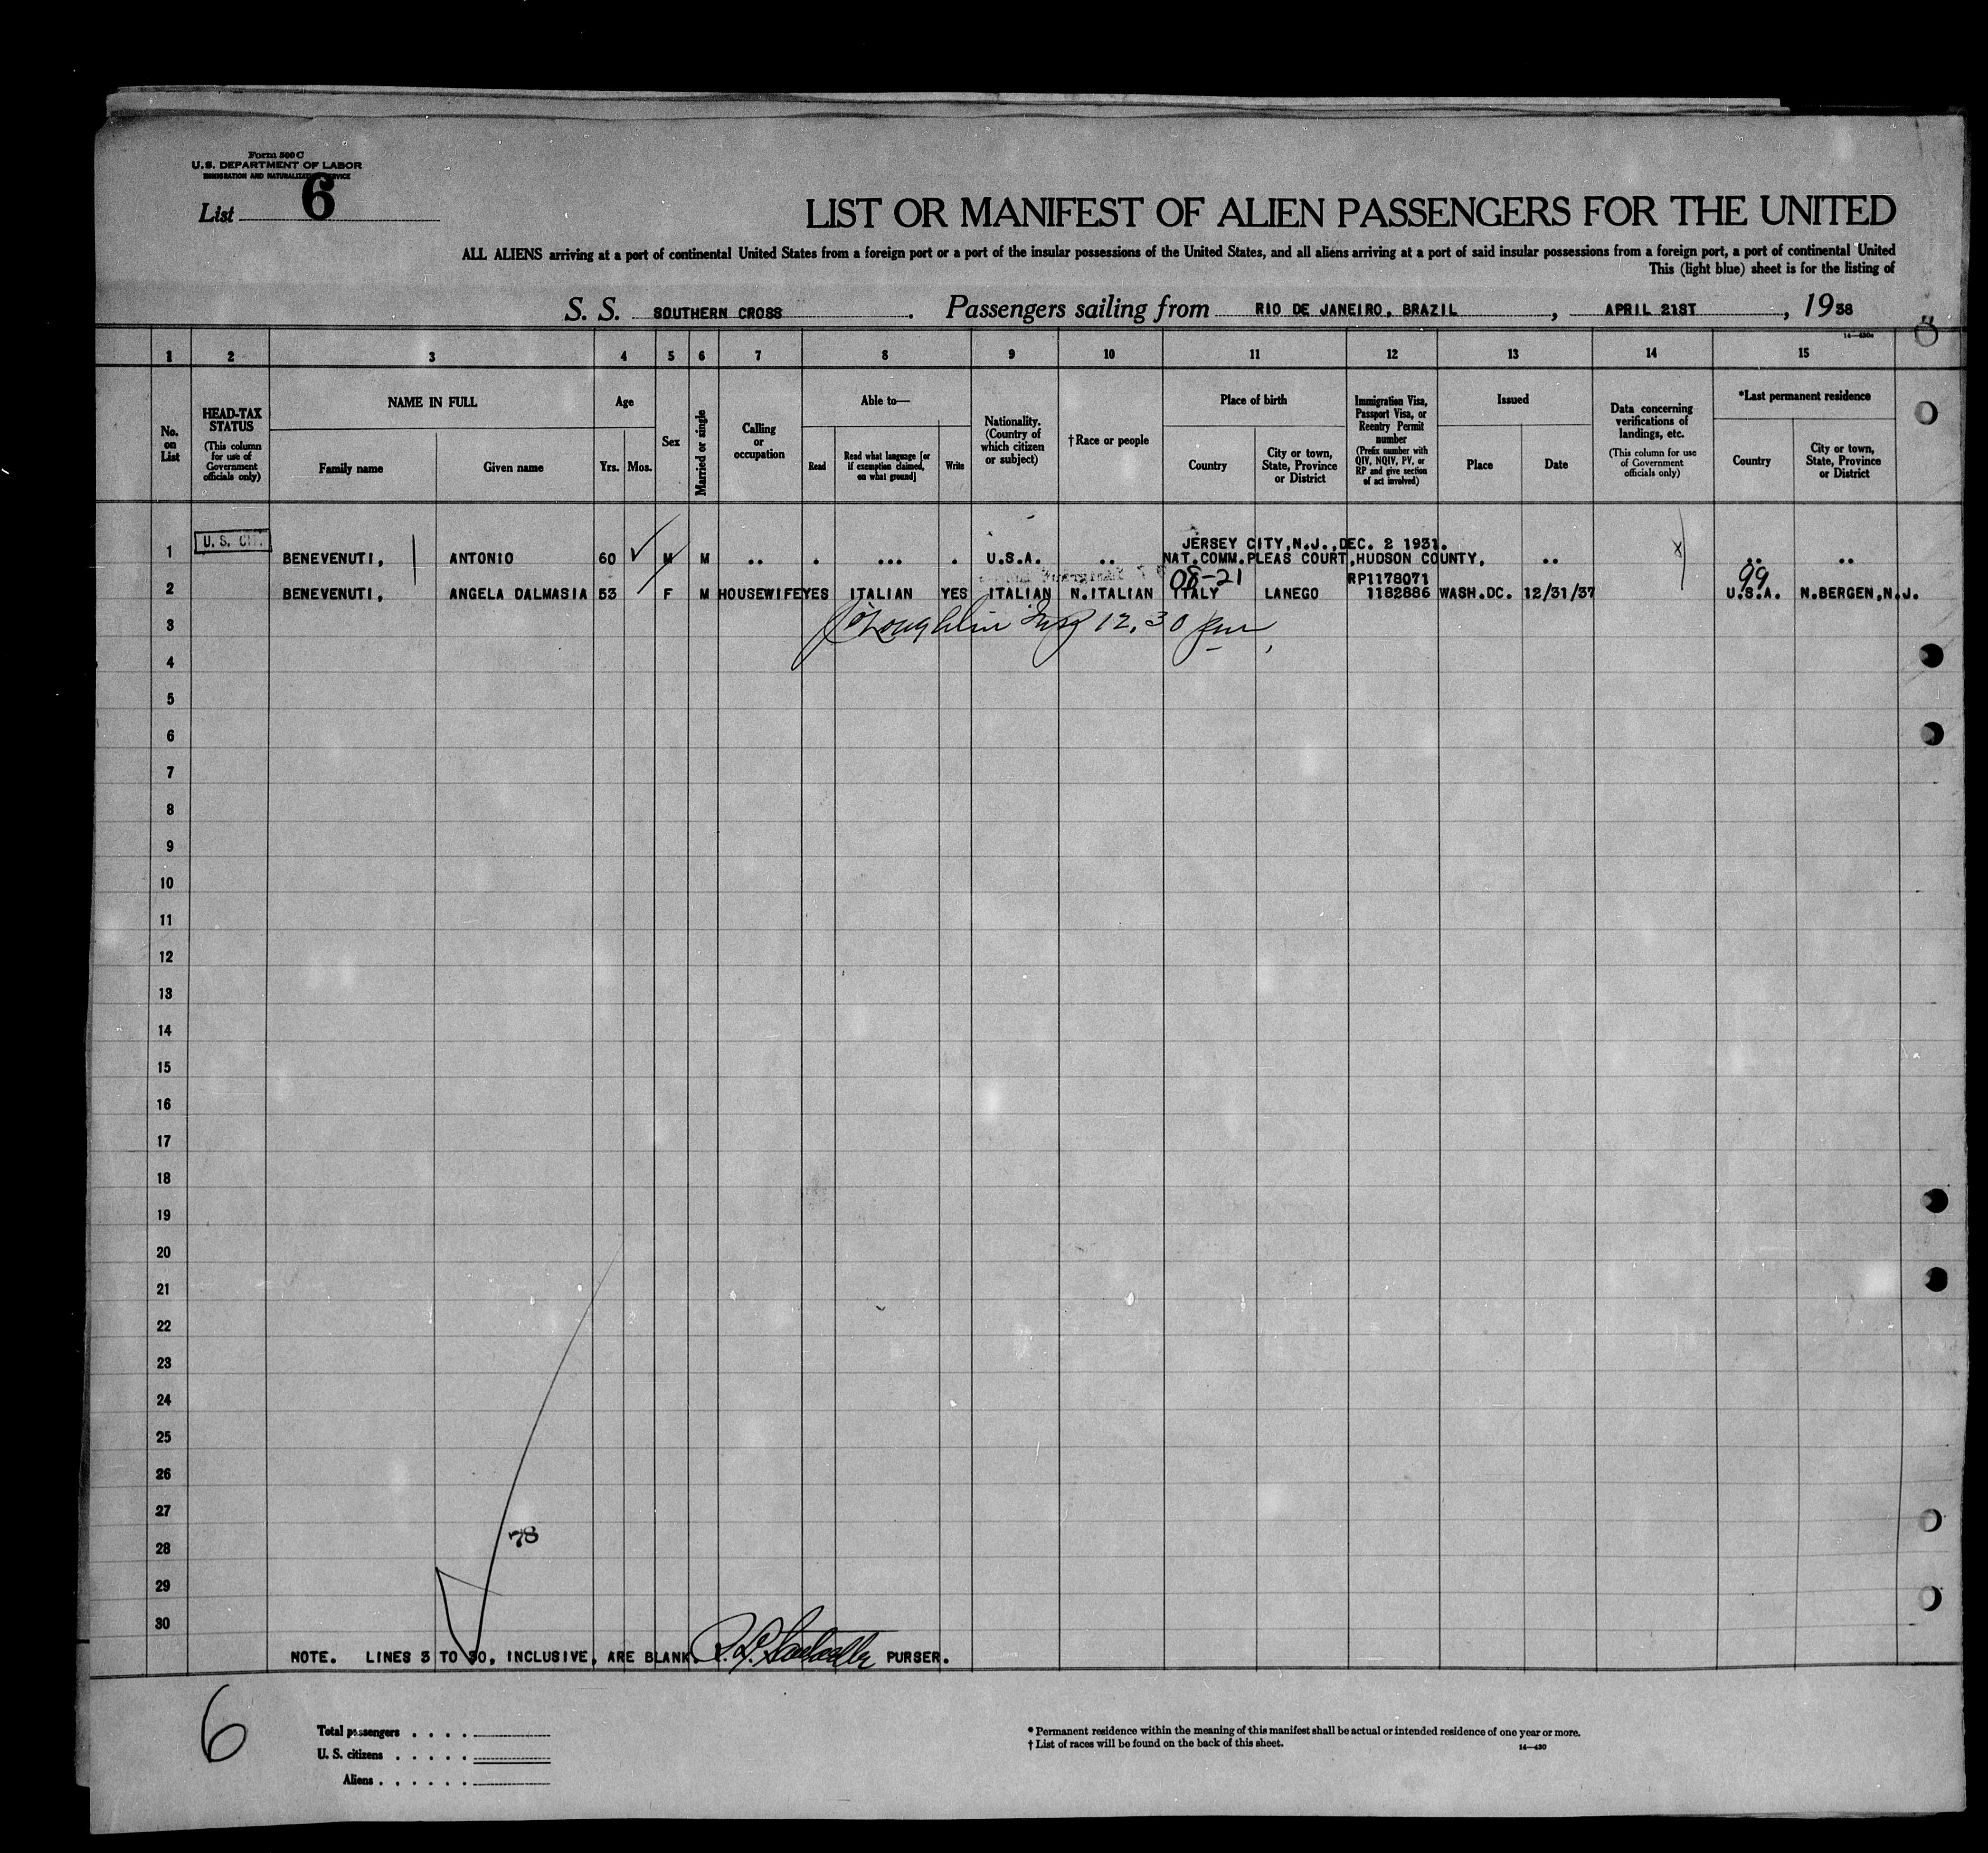 Form 500 C
U.S. DEPARTMENT OF LABOR
IMMIGRATION AND NATURALIZATION SERVICE
List 6
LIST OR MANIFEST OF ALIEN PASSENGERS FOR THE UNITED
ALL ALIENS arriving at a port of continental United States from a foreign port or a port of the insular possessions of the United States, and all aliens arriving at a port of said insular possessions from a foreign port, a port of continental United
This (light blue) sheet is for the listing of
S. S. SOUTHERN CROSS . Passengers sailing from RIO DE JANEIRO, BRAZIL , APRIL 21ST , 1938
1 2 3 4 5 6 7 8 9 10 11 12 13 14 15
No. on List
HEAD-TAX STATUS
(This column for use of Government officials only)
NAME IN FULL
Family name Given name
Age
Yrs. Mos.
Sex
Married or single
Calling or occupation
Able to—
Read
Read what language [or if exemption claimed, on what ground]
Write
Nationality. (Country of which citizen or subject)
†Race or people
Place of birth
Country
City or town, State, Province or District
Immigration Visa, Passport Visa, or Reentry Permit number
(Prefix number with QIV, NQIV, PV, or RP and give section of act involved)
Issued
Place Date
Data concerning verifications of landings, etc.
(This column for use of Government officials only)
*Last permanent residence
Country
City or town, State, Province or District
U. S. CIT.
JERSEY CITY, N.J., DEC. 2 1931.
1 BENEVENUTI, ANTONIO 60 M M .. . ... . U.S.A. .. NAT.COMM.PLEAS COURT, HUDSON COUNTY, .. .. ..
08-21 RP1178071 99
2 BENEVENUTI, ANGELA DALMASIA 53 F M HOUSEWIFE YES ITALIAN YES ITALIAN N.ITALIAN ITALY LANEGO 1182886 WASH.DC. 12/31/37 U.S.A. N.BERGEN,N.J.
3 12.30 pm
4
5
6
7
8
9
10
11
12
13
14
15
16
17
18
19
20
21
22
23
24
25
26
27
78
28
29
30
NOTE. LINES 3 TO 30, INCLUSIVE, ARE BLANK. PURSER.
6
Total passengers . . . .
U. S. citizens . . . . .
Aliens . . . . . .
* Permanent residence within the meaning of this manifest shall be actual or intended residence of one year or more.
† List of races will be found on the back of this sheet.
14—430